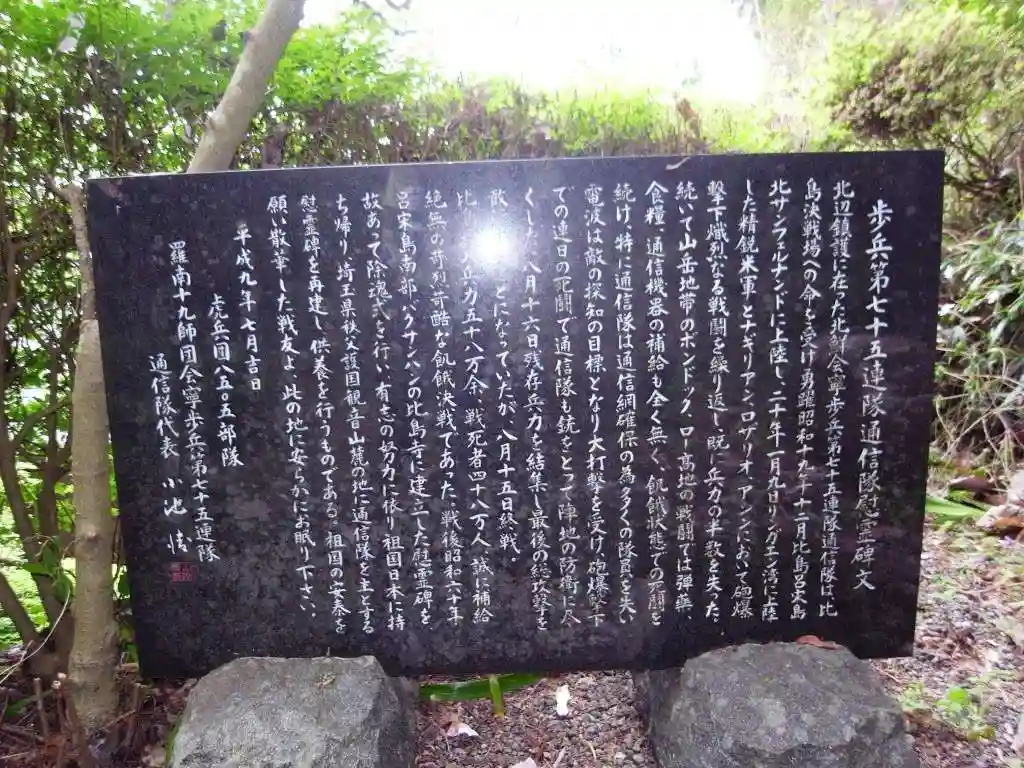 歩兵第七十五連隊通信隊慰霊碑文
北辺鎮護に在った北鮮会寧歩兵第七十五連隊通信隊は、比
島決戦場への命を受け勇躍昭和十九年十二月比島呂宋島
北サンフェルナンドに上陸し、二十年一月九日リンガエン湾に上陸
した精鋭米軍とナギリアン、ロザリオ、アシンにおいて砲爆
撃下熾烈なる戦闘を繰り返し既に兵力の半数を失った、
続いて山岳地帯のボンドック、ロー高地の戦闘では弾薬、
食糧、通信機器の補給も全く無く、飢餓状態での死闘を
続け、特に通信隊は通信網確保の為多くの隊員を失い
電波は敵の探知の目標となり大打撃を受け、砲爆撃下
での連日の死闘で通信隊も銃をとって陣地の防衛に全
くした、八月十六日残存兵力を結集し最後の総攻撃を
敵 とになっていたが、八月十五日終戦。
比 兵力五十八万余、戦死者四十八万人、誠に補給
絶無の苛烈苛酷な飢餓決戦であった、戦後昭和六十年
呂宋島南部、バクナンハンの比島寺に建立した慰霊碑を
故あって除魂式を行い、有志の努力に依り祖国日本に持
ち帰り、埼玉県秩父護国観音山麓の地に通信隊を主とする
慰霊碑を再建し供養を行うものである。祖国の安泰を
願い散華した戦友よ、此の地に安らかにお眠り下さい。
平成九年七月吉日
虎兵団八五〇五部隊
羅南十九師団会寧歩兵第七十五連隊
通信隊代表 小池